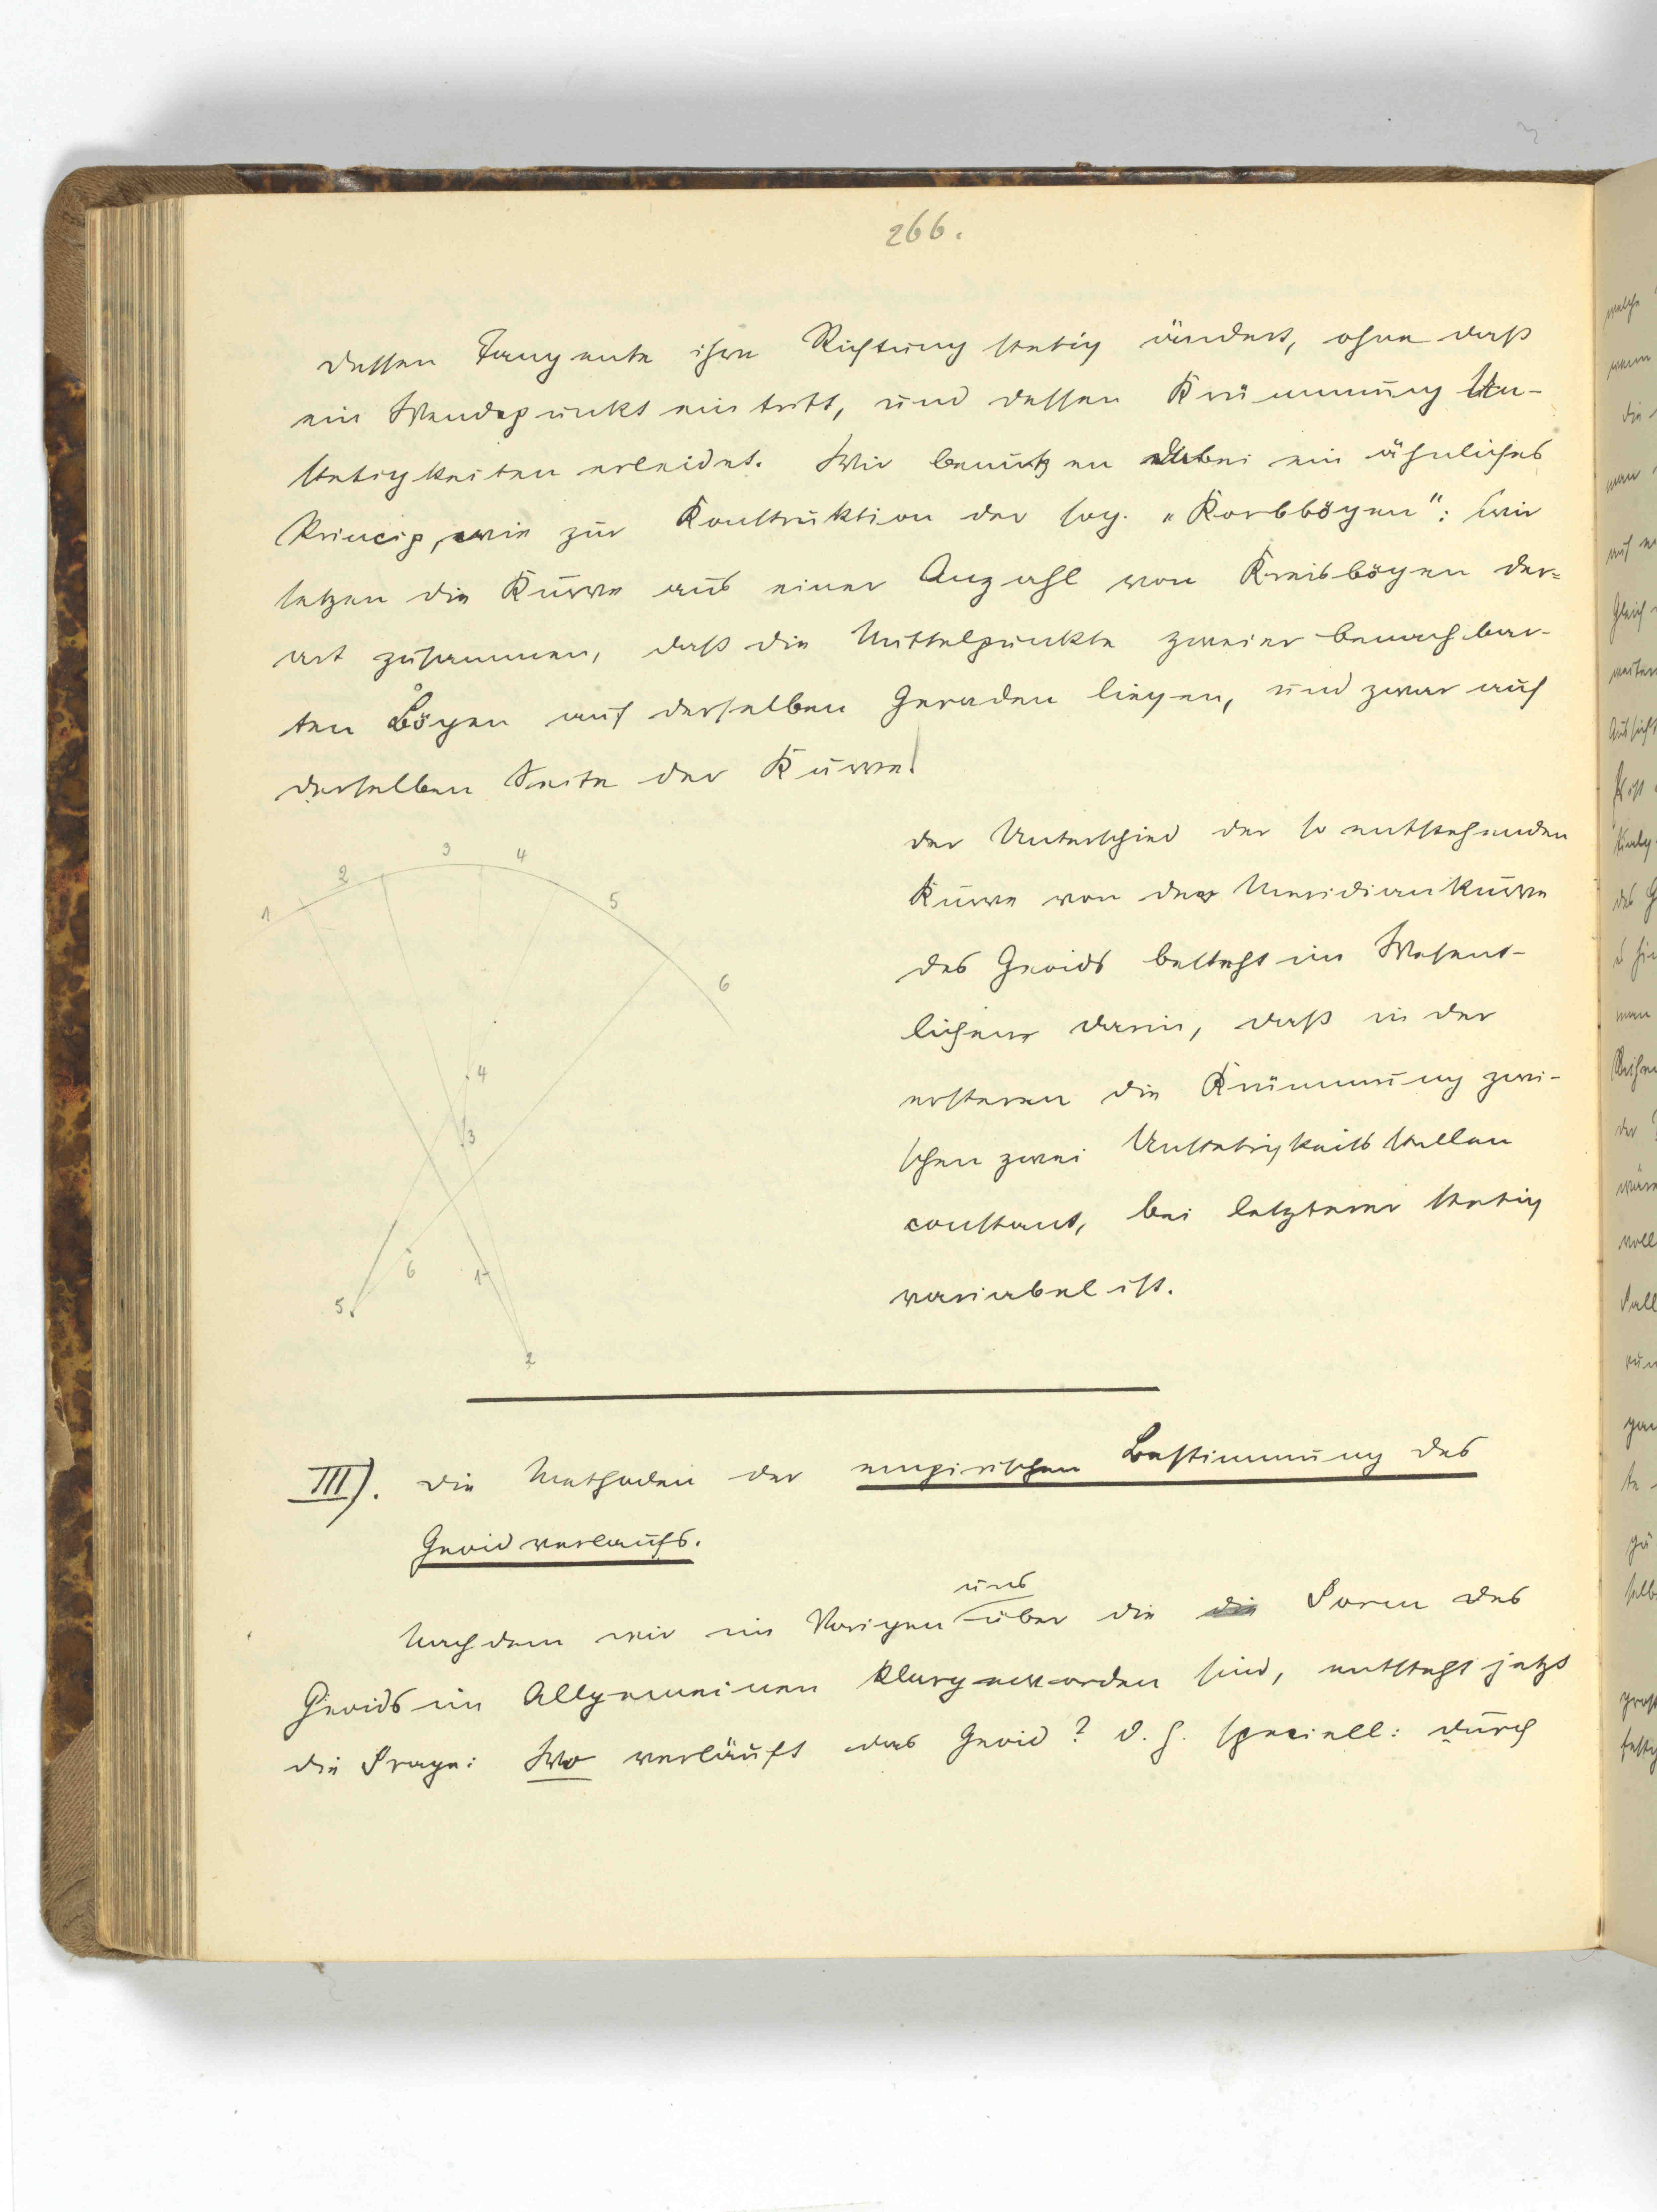 266.
dessen Tangente ihre Richtung stetig ändert, ohne daß
ein Wendepunkt eintritt, und dessen Krümmung Un-
stetigkeiten erleidet. Wir benutzen dabei ein ähnliches
Princip, wie zur Konstruktion der sog. „Korbbögen": wir
setzen die Kurve aus einer Anzahl von Kreisbögen der-
art zusammen, daß die Mittelpunkte zweier benachbar-
ten Bögen auf derselben Geraden liegen, und zwar auf
derselben Seite der Kurve!
der Unterschied der so entstehenden
Kurve von der Meridiankurve
des Geoids besteht im Wesent-
lichen darin, daß in der
ersteren die Krümmung zwi-
schen zwei Unstetigkeitsstellen
constant, bei letzterer stetig
variabel ist.
1 2 3 4 5 6
4
3
6 1
5
2
III). Die Methoden der empirischen Bestimmung des
Geoidverlaufs.
uns
Nachdem wir im Vorigen über die die Form des
Geoids im Allgemeinen klargeworden sind, entsteht jetzt
die Frage: Wo verläuft das Geoid? d. h. speciell: durch